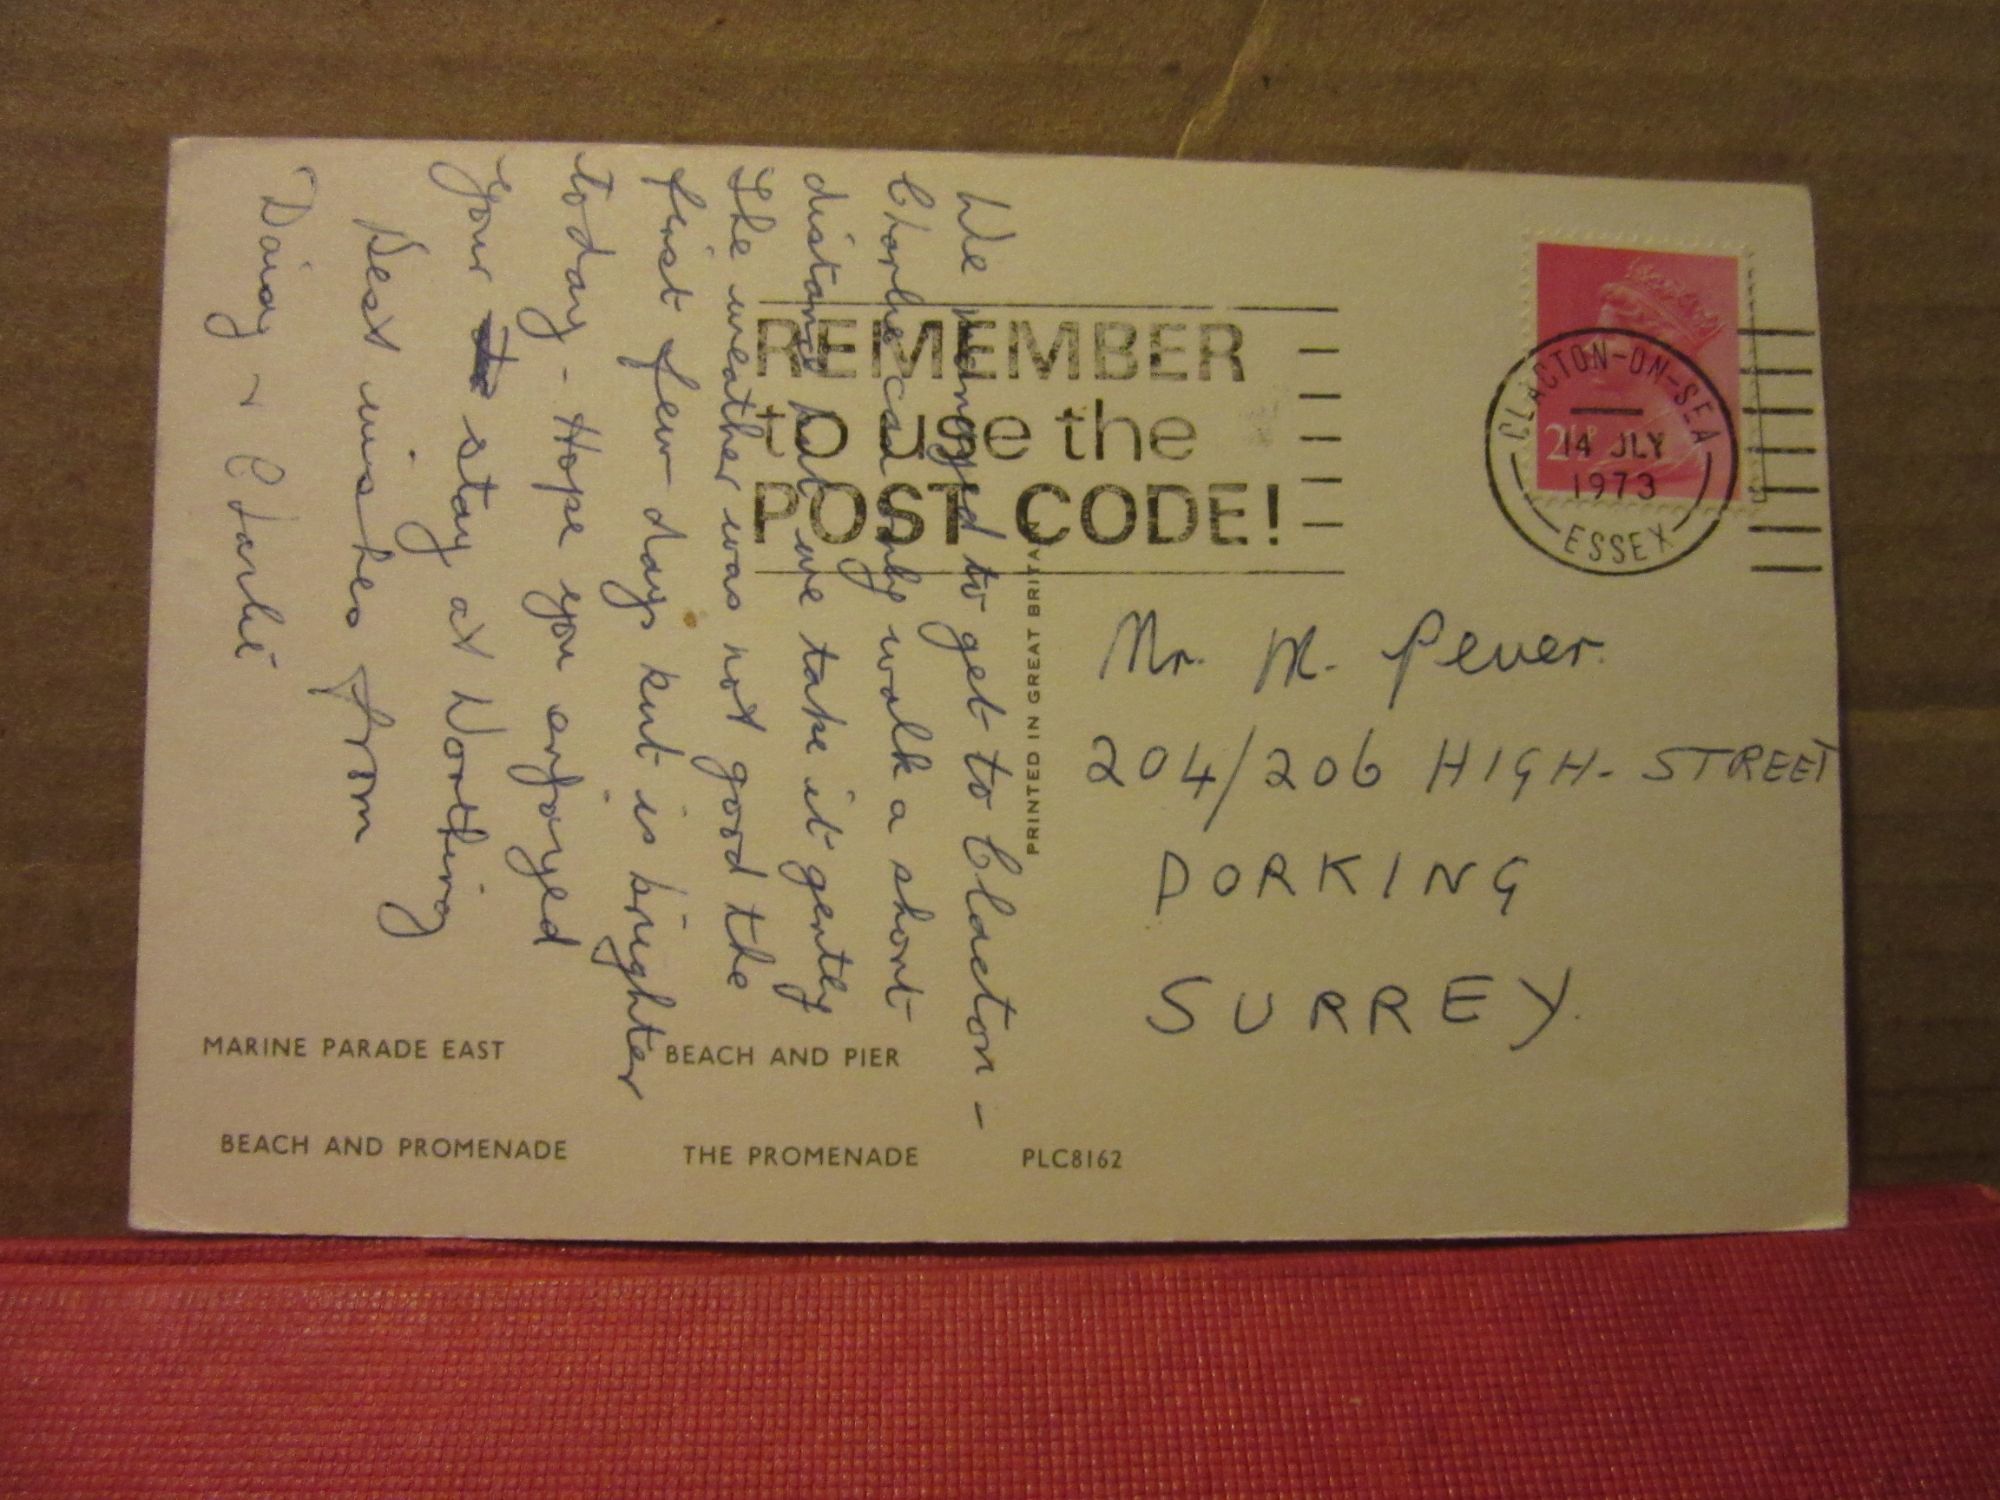 We managed to get to Clacton -
Charlie can only walk a short
distance but we take it gently
The weather was not good the
first few days but is brighter
today - Hope you enjoyed
your stay at Worthing
Best wishes from
Daisy + Charlie
REMEMBER
to use the
POST CODE!
CLACTON-ON-SEA
14 JLY
1973
ESSEX
2½P
PRINTED IN GREAT BRITAIN
Mr. M. Pever.
204/206 HIGH-STREET
DORKING
SURREY.
MARINE PARADE EAST BEACH AND PIER
BEACH AND PROMENADE THE PROMENADE PLC8162